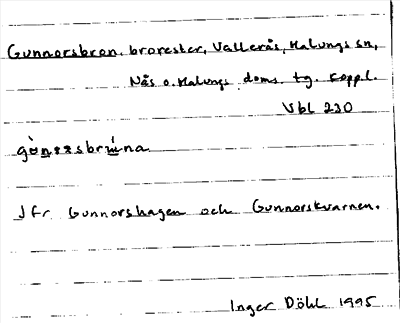 Gunnorsbron, brorester, Vallerås, Malungs sn,
Nås o. Malungs doms. tg. Koppl.
Vbl 230
Jfr Gunnorshagen och Gunnorskvarnen.
Inger Döhl 1995